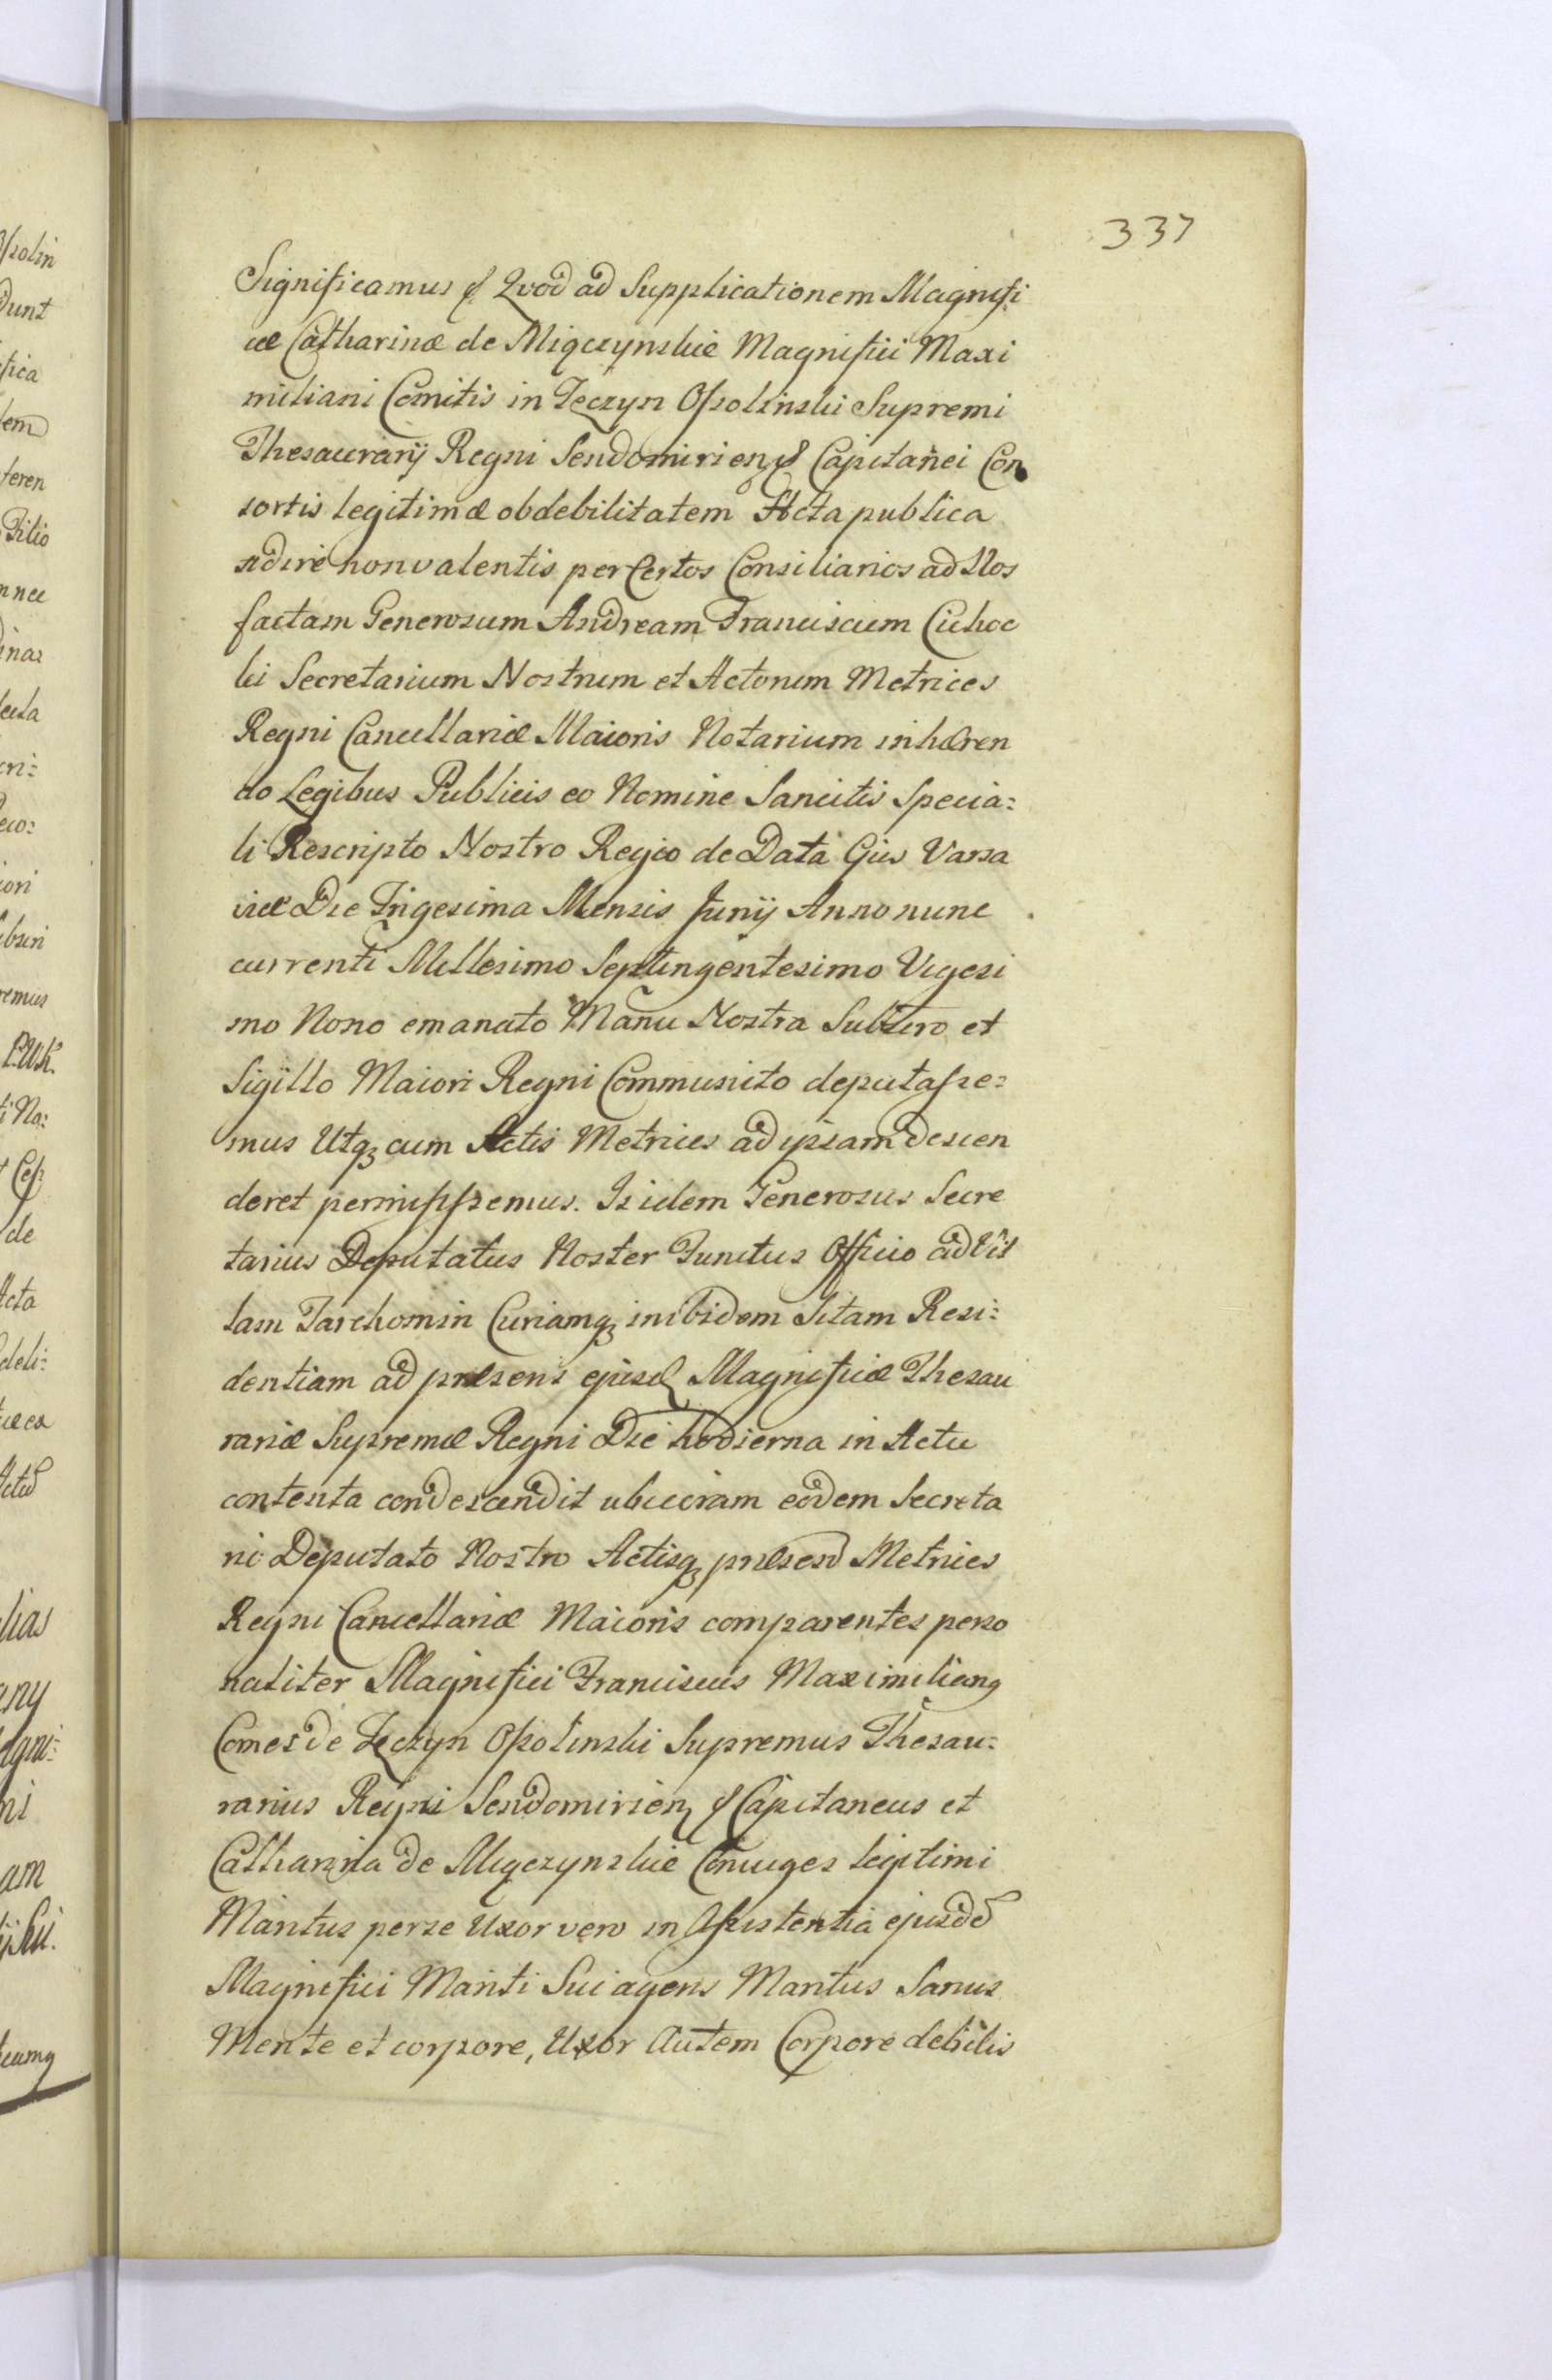 337
Significamus & Quod ad Supplicationem Magnifi
cæ Catharinæ de Miączynskie Magnifici Maxi
miliani Comitis in Tęczyn Ossolinski Supremi
Thesaurarij Regni Sendomirien & Capitanei Con
sortis legitimæ obdebilitatem Acta publica
adire nonvalentis per Certos Consiliarios ad Nos
factam Generosum Andream Franciscum Cichoc
ki Secretarium Nostrum et Actorum Metrices
Regni Cancellariæ Maioris Notarium inhæren
do Legibus Publicis eo Nomine Sancitis Specia:
li Rescripto Nostro Regio de Data Ejus Varsa
viæ Die Trigesima Mensis Junij Anno nunc
currenti Millesimo Septingentesimo Vigesi
mo Nono emanato Manu Nostra Subscro et
Sigillo Maiori Regni Communito deputasse:
mus Utq cum Actis Metrices ad ipsam descen
deret permissemus. Is idem Generosus Secre
tarius Deputatus Noster Functus Officio ad Vil
lam Tarchomin Curiamq inibidem Sitam Resi:
dentiam ad præsens ejusd Magnificæ Thesau
rariæ Supremæ Regni Die hodierna in Actu
contenta condescendit ubi coram eodem Secreta
rio Deputato Nostro Actisq præsend Metrices
Regni Cancellariæ Maioris comparentes perso
naliter Magnifici Franciscus Maximilianq
Comes de Tęczyn Ossolinski Supremus Thesau:
rarius Regni Sendomirien & Capitaneus et
Catharina de Miączynskie Coniuges legitimi
Maritus perse Uxor vero in Assistentia ejusdē
Magnifici Mariti Sui agens Maritus Sanus
Mente et corpore, Uxor Autem Corpore debilis